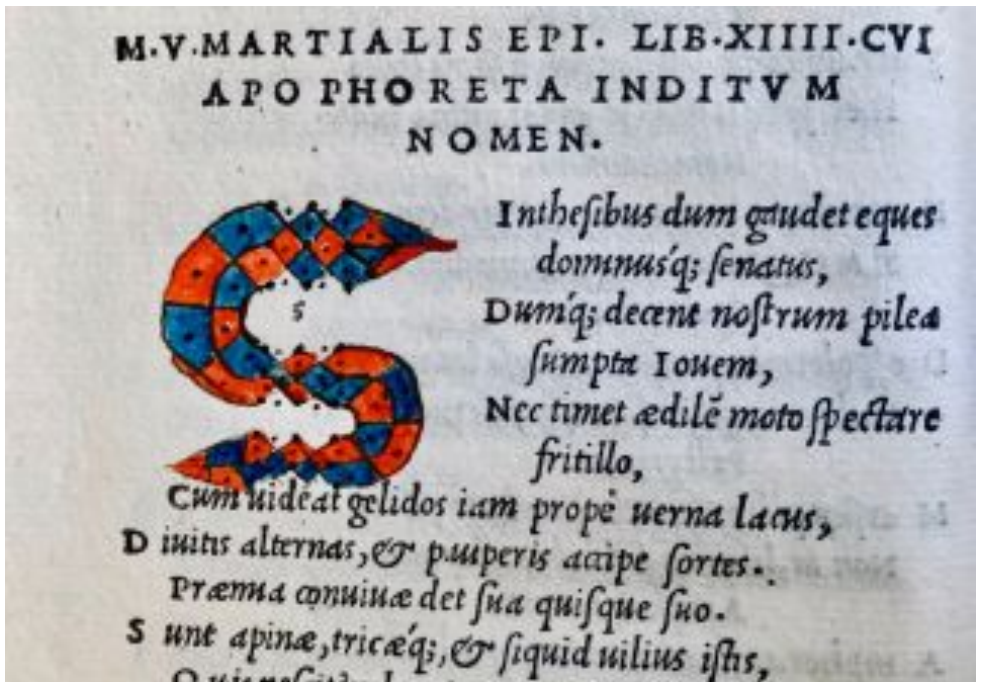 M.V.MARTIALIS EPI. LIB.XIIII.CVI
APOPHORETA INDITVM
NOMEN.
S Intheſibus dum gaudet eques
s
dominusq́; ſenatus,
Dumq́; decent noſtrum pilea
ſumpta Iouem,
Nec timet ædilē moto ſpectare
fritillo,
Cum uideat gelidos iam propè uerna lacus,
Diuitis alternas, & pauperis accipe ſortes.
Præmia conuiuæ det ſua quiſque ſuo.
Sunt apinæ, tricæq́;, & ſiquid uilius iſtis,